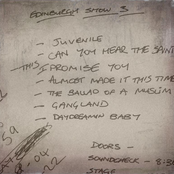 EDINBURGH SHOW 3
- JUVENILE
- CAN YOU HEAR THE SAINT
THIS I PROMISE YOU
- ALMOST MADE IT THIS TIME
- THE BALLAD OF A MUSLIM
- GANGLAND
- DAYDREAMIN BABY
59
04
22
DOORS -
SOUNDCHECK - 8:30
STAGE